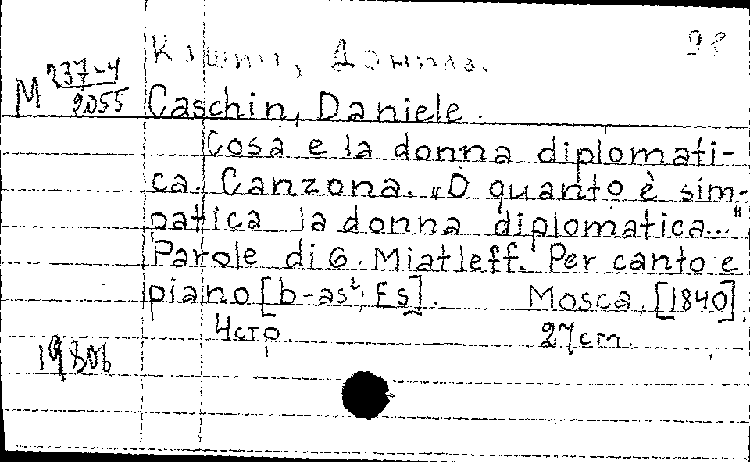 Кашин, Данила. 98
М 237-4/2055 Caschin, Daniele.
Cosa e la donna diplomati-
ca. Canzona. „O quanto è sim-
patica la donna diplomatica..."
Parole di G. Miatleff. Per canto e
piano [b-as²; Es]. Mosca, [1840].
4стр. 27cm.
19806